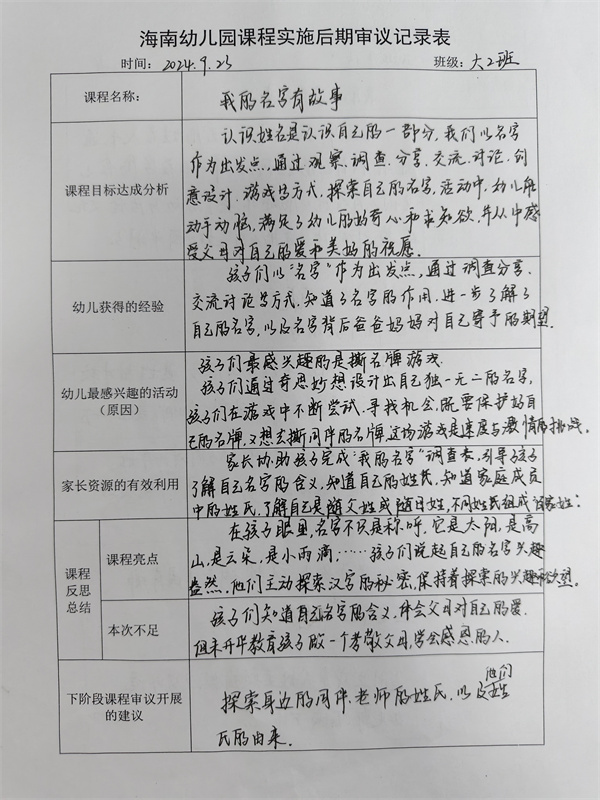 海南幼儿园课程实施后期审议记录表
时间：2024.9.23 班级：大2班
课程名称： 我的名字有故事
课程目标达成分析
认识姓名是认识自己的一部分，我们以名字
作为出发点，通过观察、调查、分享、交流、讨论、创
意设计、游戏等方式，探索自己的名字，活动中，幼儿能
动手动脑，满足了幼儿的好奇心和求知欲，并从中感
受父母对自己的爱和美好的祝愿。
幼儿获得的经验
孩子们以“名字”作为出发点，通过调查分享、
交流讨论等方式，知道了名字的作用，进一步了解了
自己的名字，以及名字背后爸爸妈妈对自己寄予的期望。
幼儿最感兴趣的活动
（原因）
孩子们最感兴趣的是撕名牌游戏.
孩子们通过奇思妙想设计出自己独一无二的名字，
孩子们在游戏中不断尝试、寻找机会，既要保护好自
己的名牌，又想去撕同伴的名牌，这场游戏是速度与激情的挑战。
家长资源的有效利用
家长协助孩子完成“我的名字”调查表，引导孩子
了解自己名字的含义，知道自己的姓氏，知道家庭成员
中的姓氏，了解自己是随父姓或随母姓，不同姓氏组成
课程
反思
总结
课程亮点
在孩子眼里，名字不只是称呼，它是太阳，是高
山，是云朵，是小雨滴；……孩子们说起自己的名字兴趣
盎然，他们主动探索汉字的秘密，保持着探索的兴趣和欲望。
本次不足
孩子们知道自己名字的含义，体会父母对自己的爱.
但未升华教育孩子做一个孝敬父母，学会感恩的人.
下阶段课程审议开展
的建议
探索身边的同伴、老师的姓氏，以及他们姓
氏的由来.